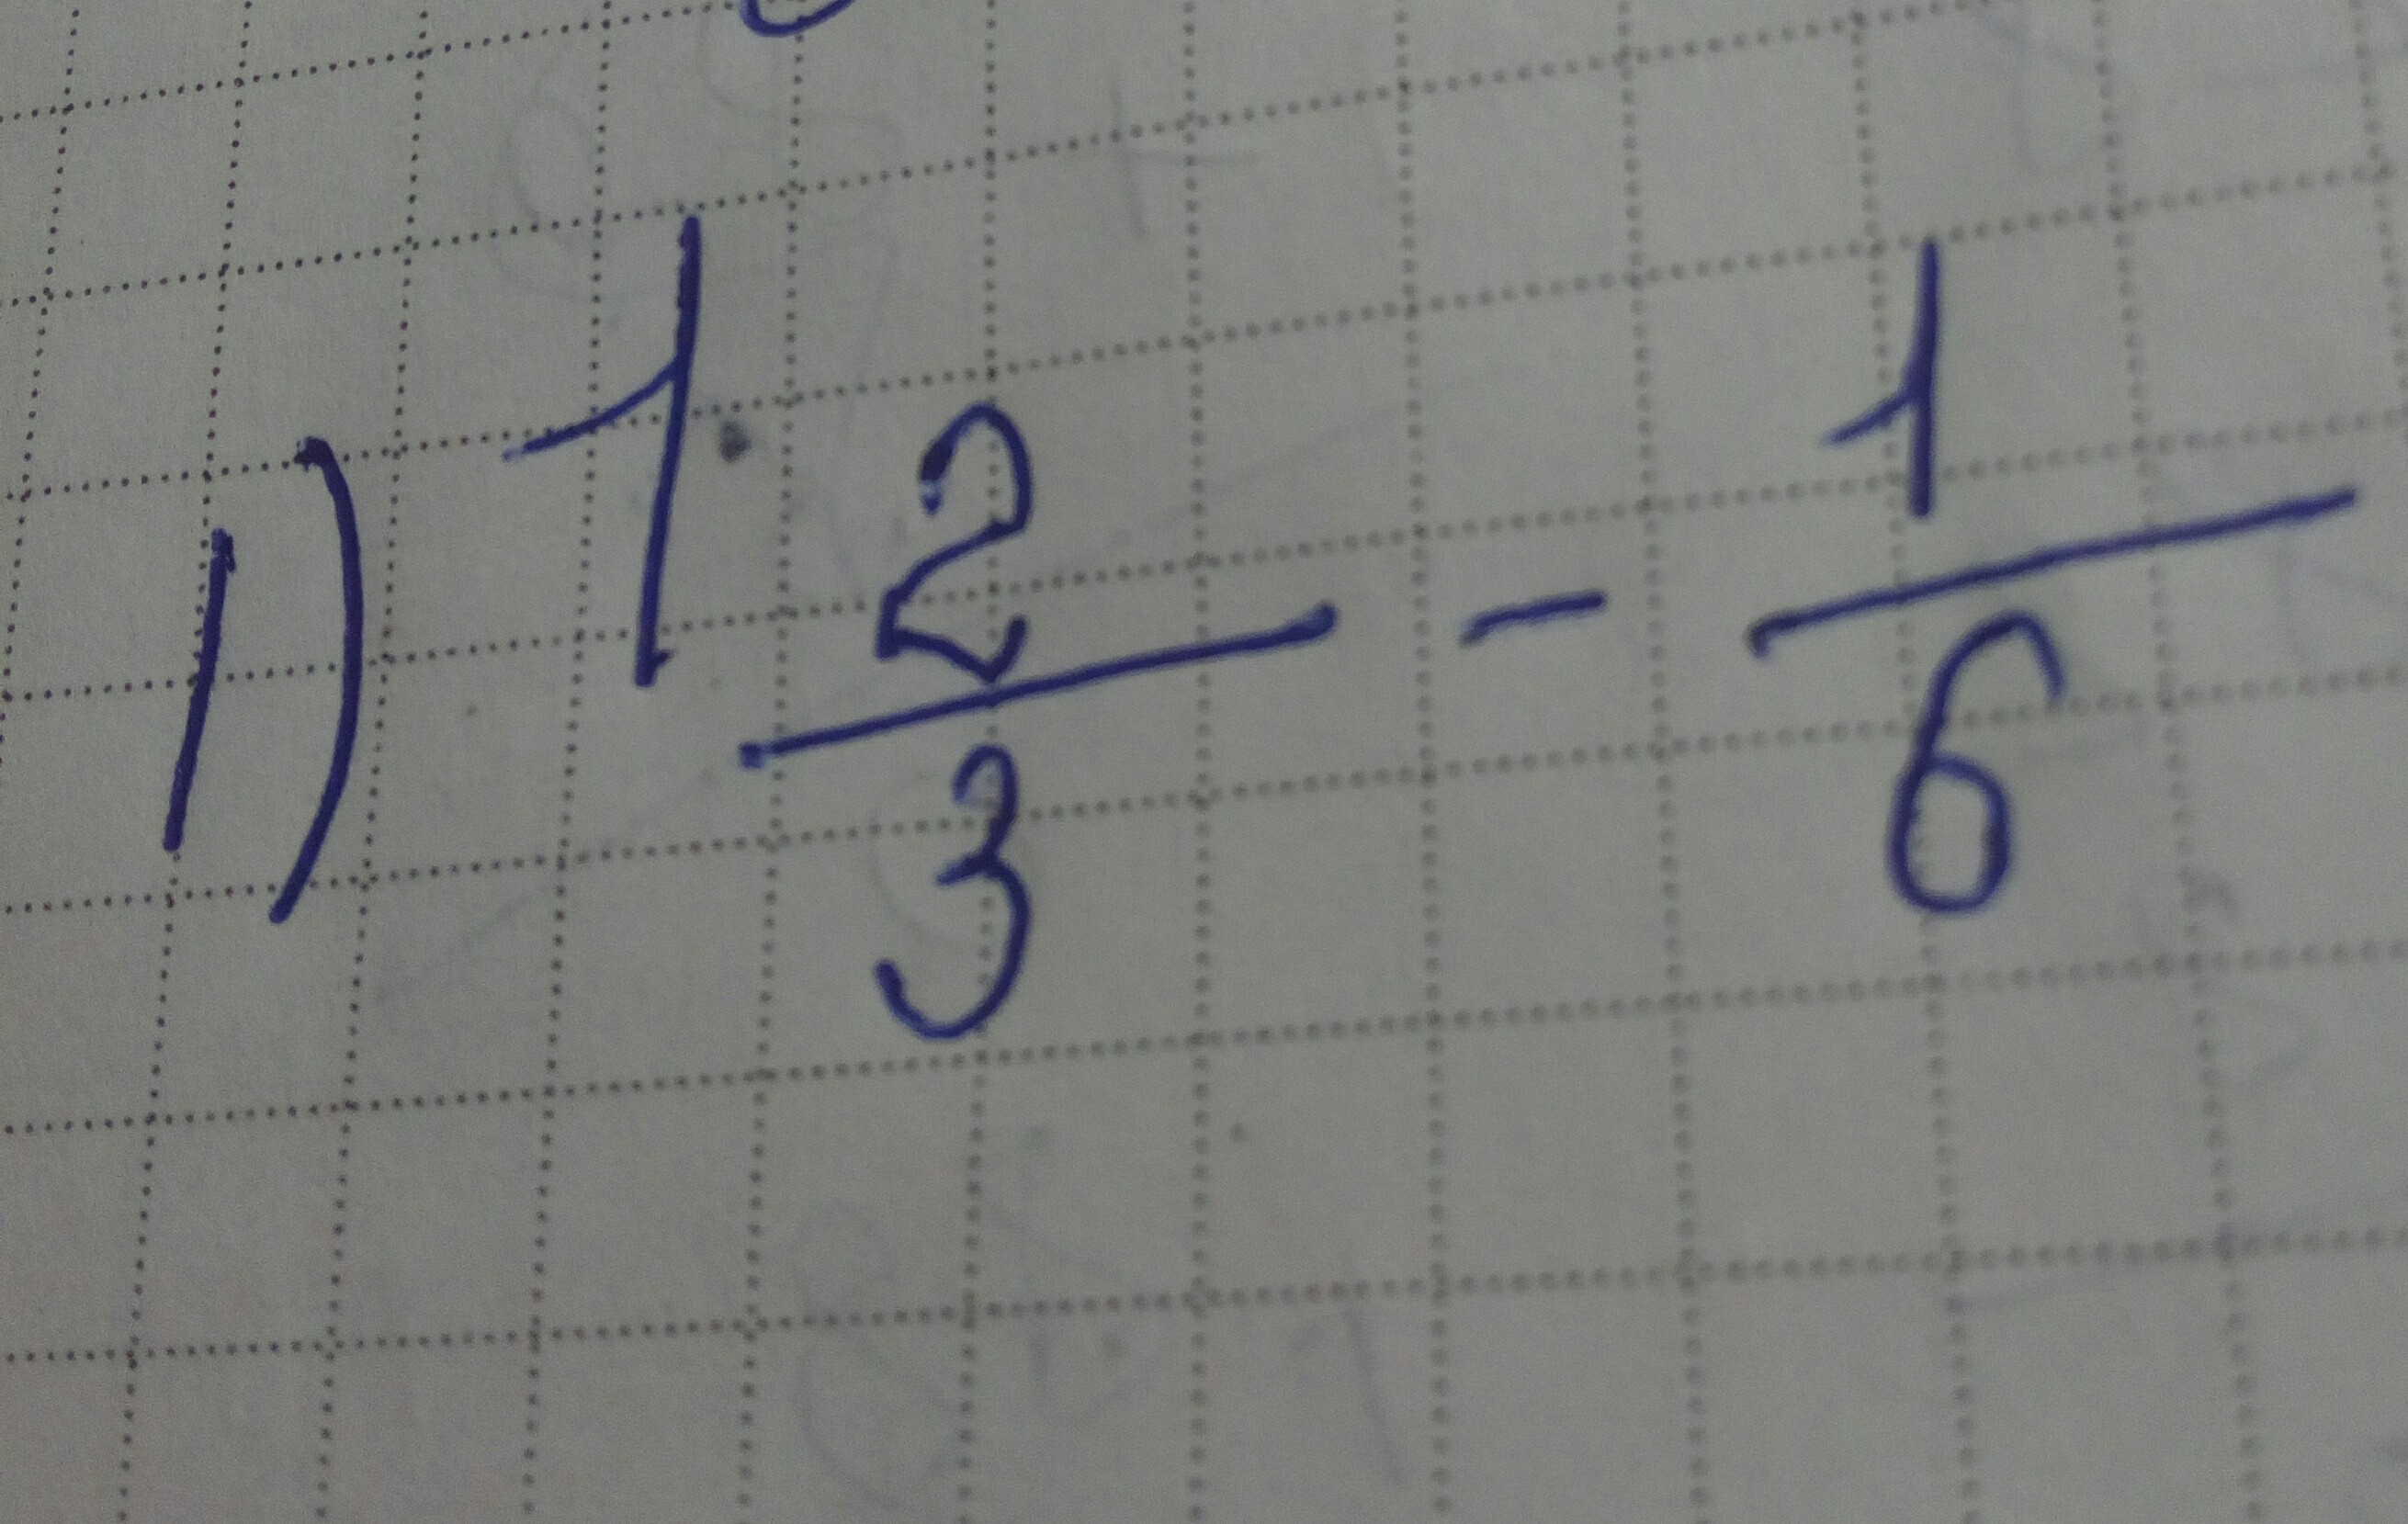 1) 1 2/3 - 1/6